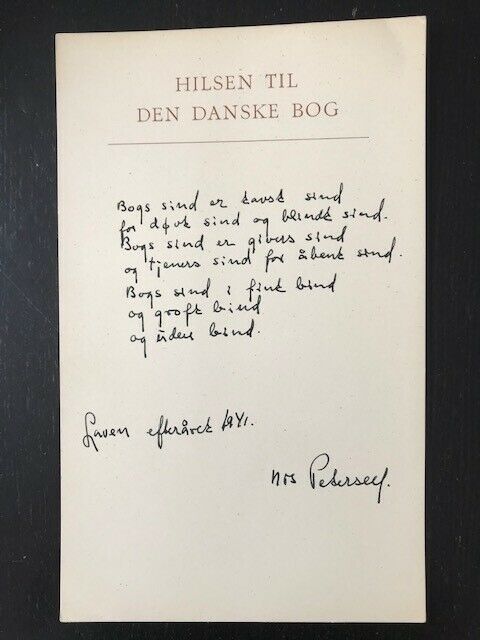 HILSEN TIL
DEN DANSKE BOG
Bogs sind er tavst sind
for døvt sind og blindt sind.
Bogs sind er givers sind
og tjeners sind for åbent sind.
Bogs sind i fint bind
og groft bind
og uden bind.
Laven efteråret 1941.
Nis Petersen.